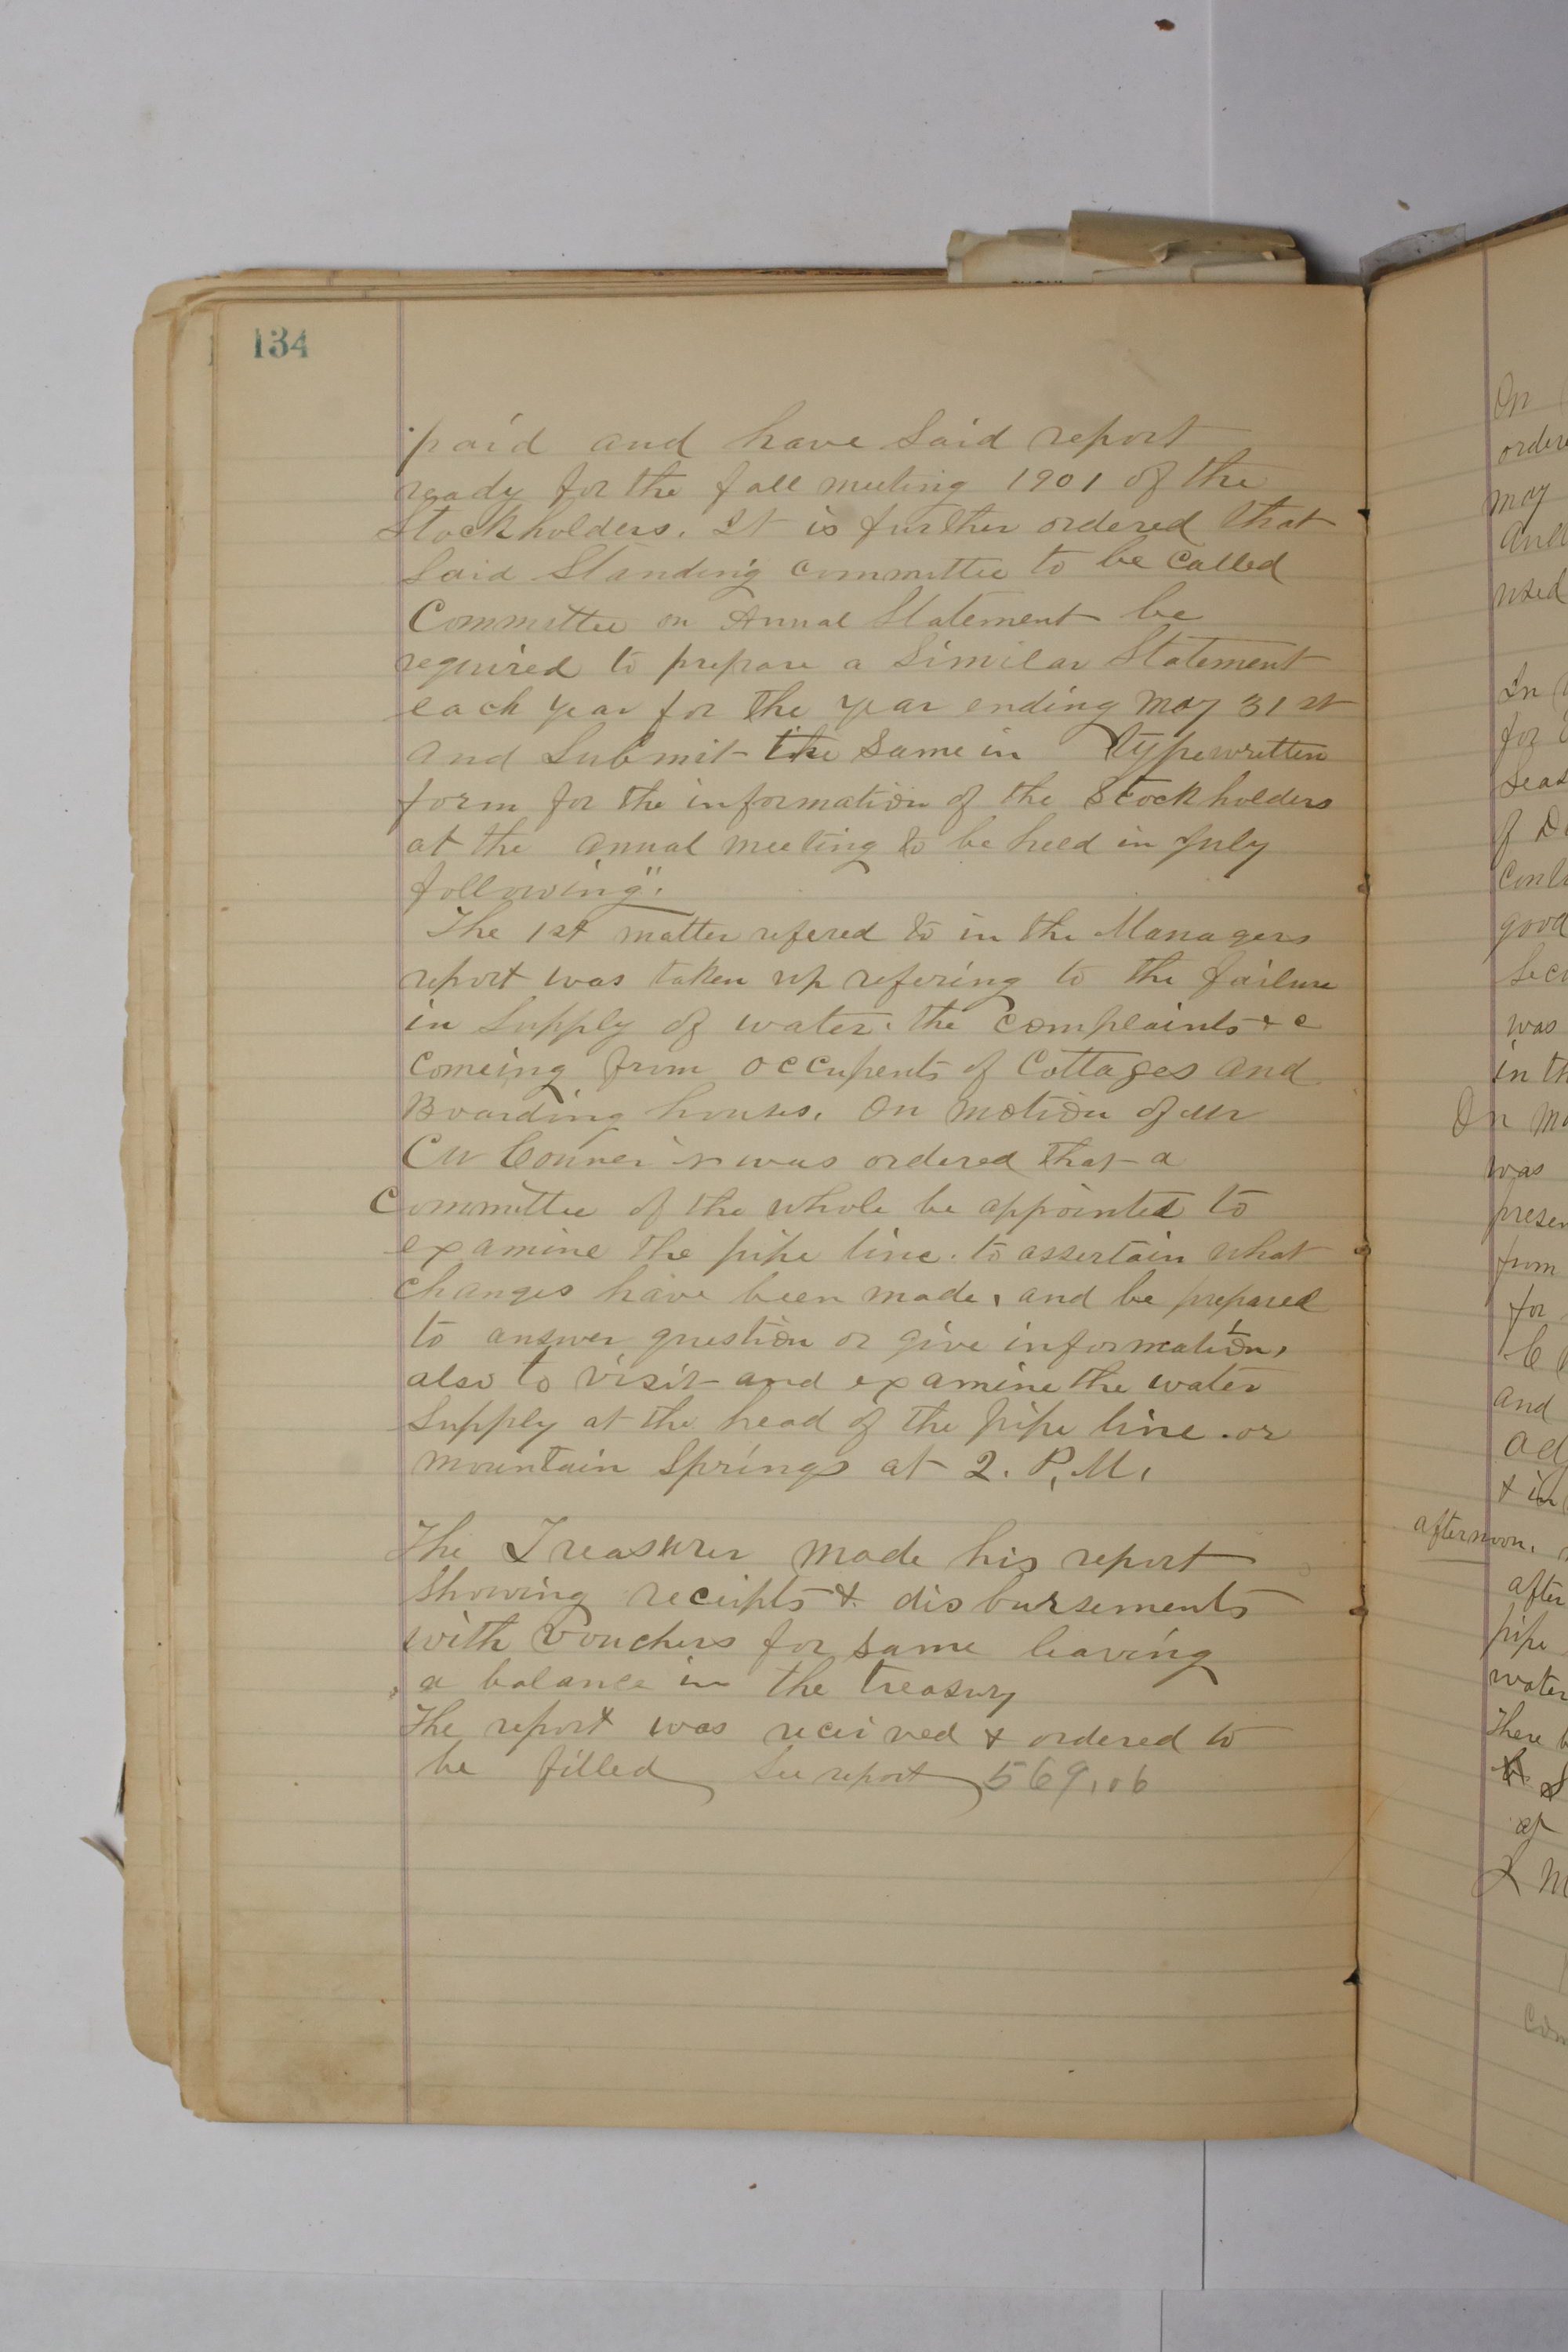 134
paid and have said report
ready for the fall meeting 1901 of the
Stockholders. It is further ordered that
said Standing committee to be called
Committee on Annual Statement be
required to prepare a Similar Statement
each year for the year ending May 31st
and Submit the same in typewritten
form for the information of the Stockholders
at the annual meeting to be held in July
following".
The 1st matter refered to in the Managers
report was taken up refering to the failure
in Supply of water. the complaints &c
comeing from occupents of Cottages and
Boarding houses. On motion of Mr
CW it was ordered that a
Committee of the whole be appointed to
examine the pipe line. to assertain what
changes have been made, and be prepared
to answer question or give information,
also to visit and examine the water
Supply at the head of the pipe line. or
mountain Springs at 2. P.M.
The Treasurer made his report
showing receipts & disbursements
with vouchers for same leaving
a balance in the treasury
The report was received & ordered to
be filled See report 569.06
On
ordere
may
and
used
In
for
Seas
of D
contr
good
Secu
was
in th
On mo
was
presen
from
for
C
and
ad
& in
afternoon.
after
pipe
water
There b
S
of
& M
com